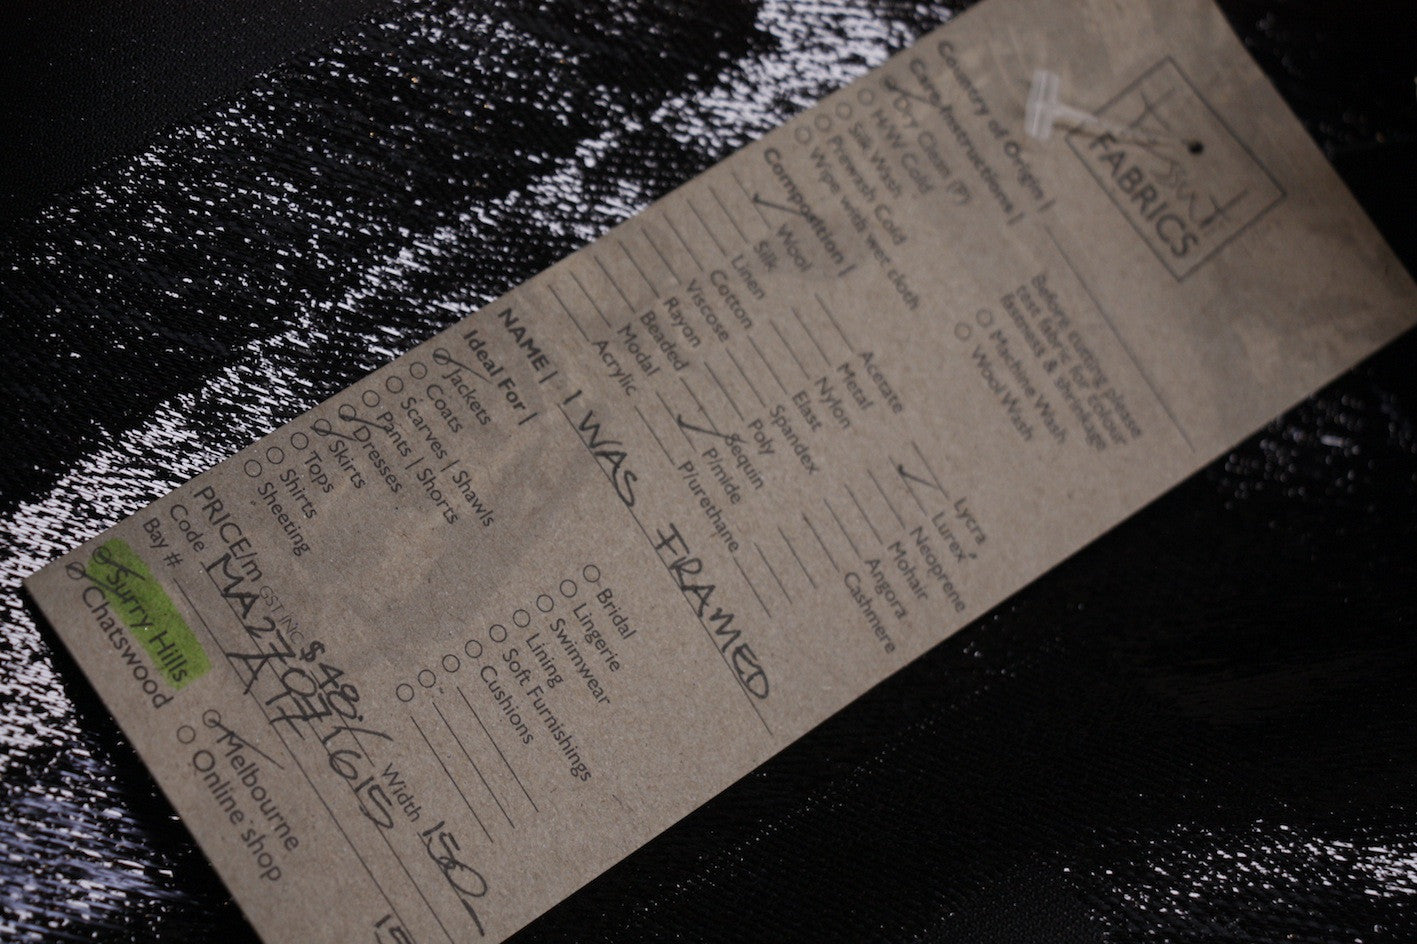 Tessuti
FABRICS
Country of Origin |
Care Instructions |
Dry Clean (P)
H/W Cold
Silk Wash
Prewash Cold
Wipe with wet cloth
Before cutting please
test fabric for colour
fastness & shrinkage
Machine Wash
Wool Wash
Composition |
Wool
Silk
Linen
Cotton
Viscose
Rayon
Beaded
Modal
Acrylic
Acetate
Metal
Nylon
Elast
Spandex
Poly
Sequin
P/mide
P/urethane
Lycra
Lurex
Neoprene
Mohair
Angora
Cashmere
NAME | I WAS FRAMED
Ideal For |
Jackets
Coats
Scarves | Shawls
Pants | Shorts
Dresses
Skirts
Tops
Shirts
Sheeting
Bridal
Lingerie
Swimwear
Lining
Soft Furnishings
Cushions
PRICE/m GST INC $ 49. Width 150
Code
Bay #
Surry Hills
Chatswood
Melbourne
Online shop